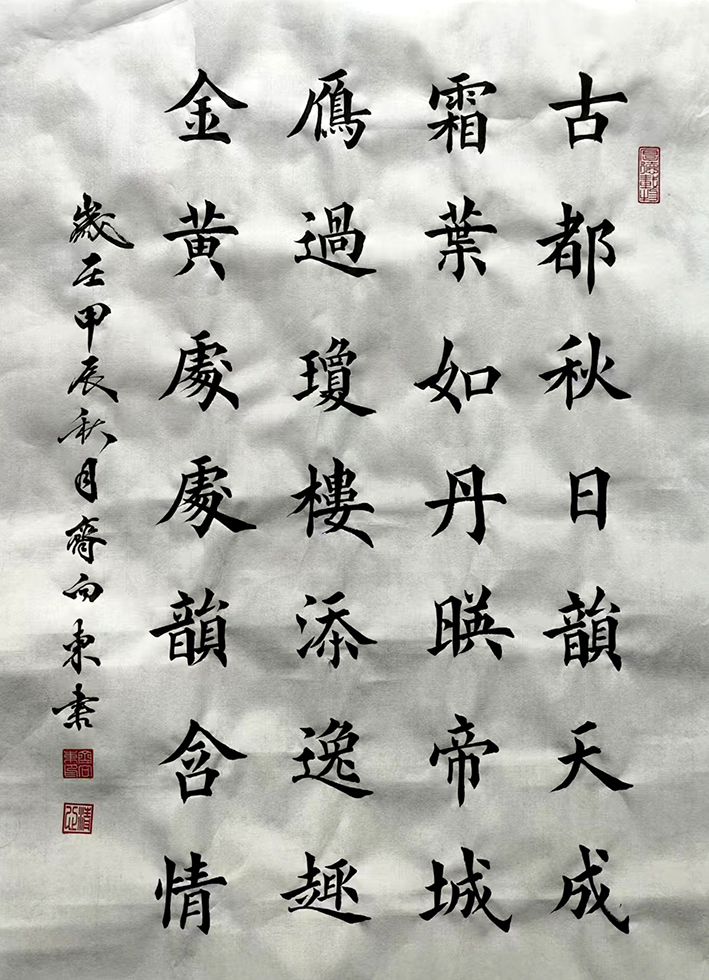 古都秋日韻天成
霜葉如丹暎帝城
鴈過瓊樓添逸趣
金黄處處韻含情
歲在甲辰秋月齊向東書